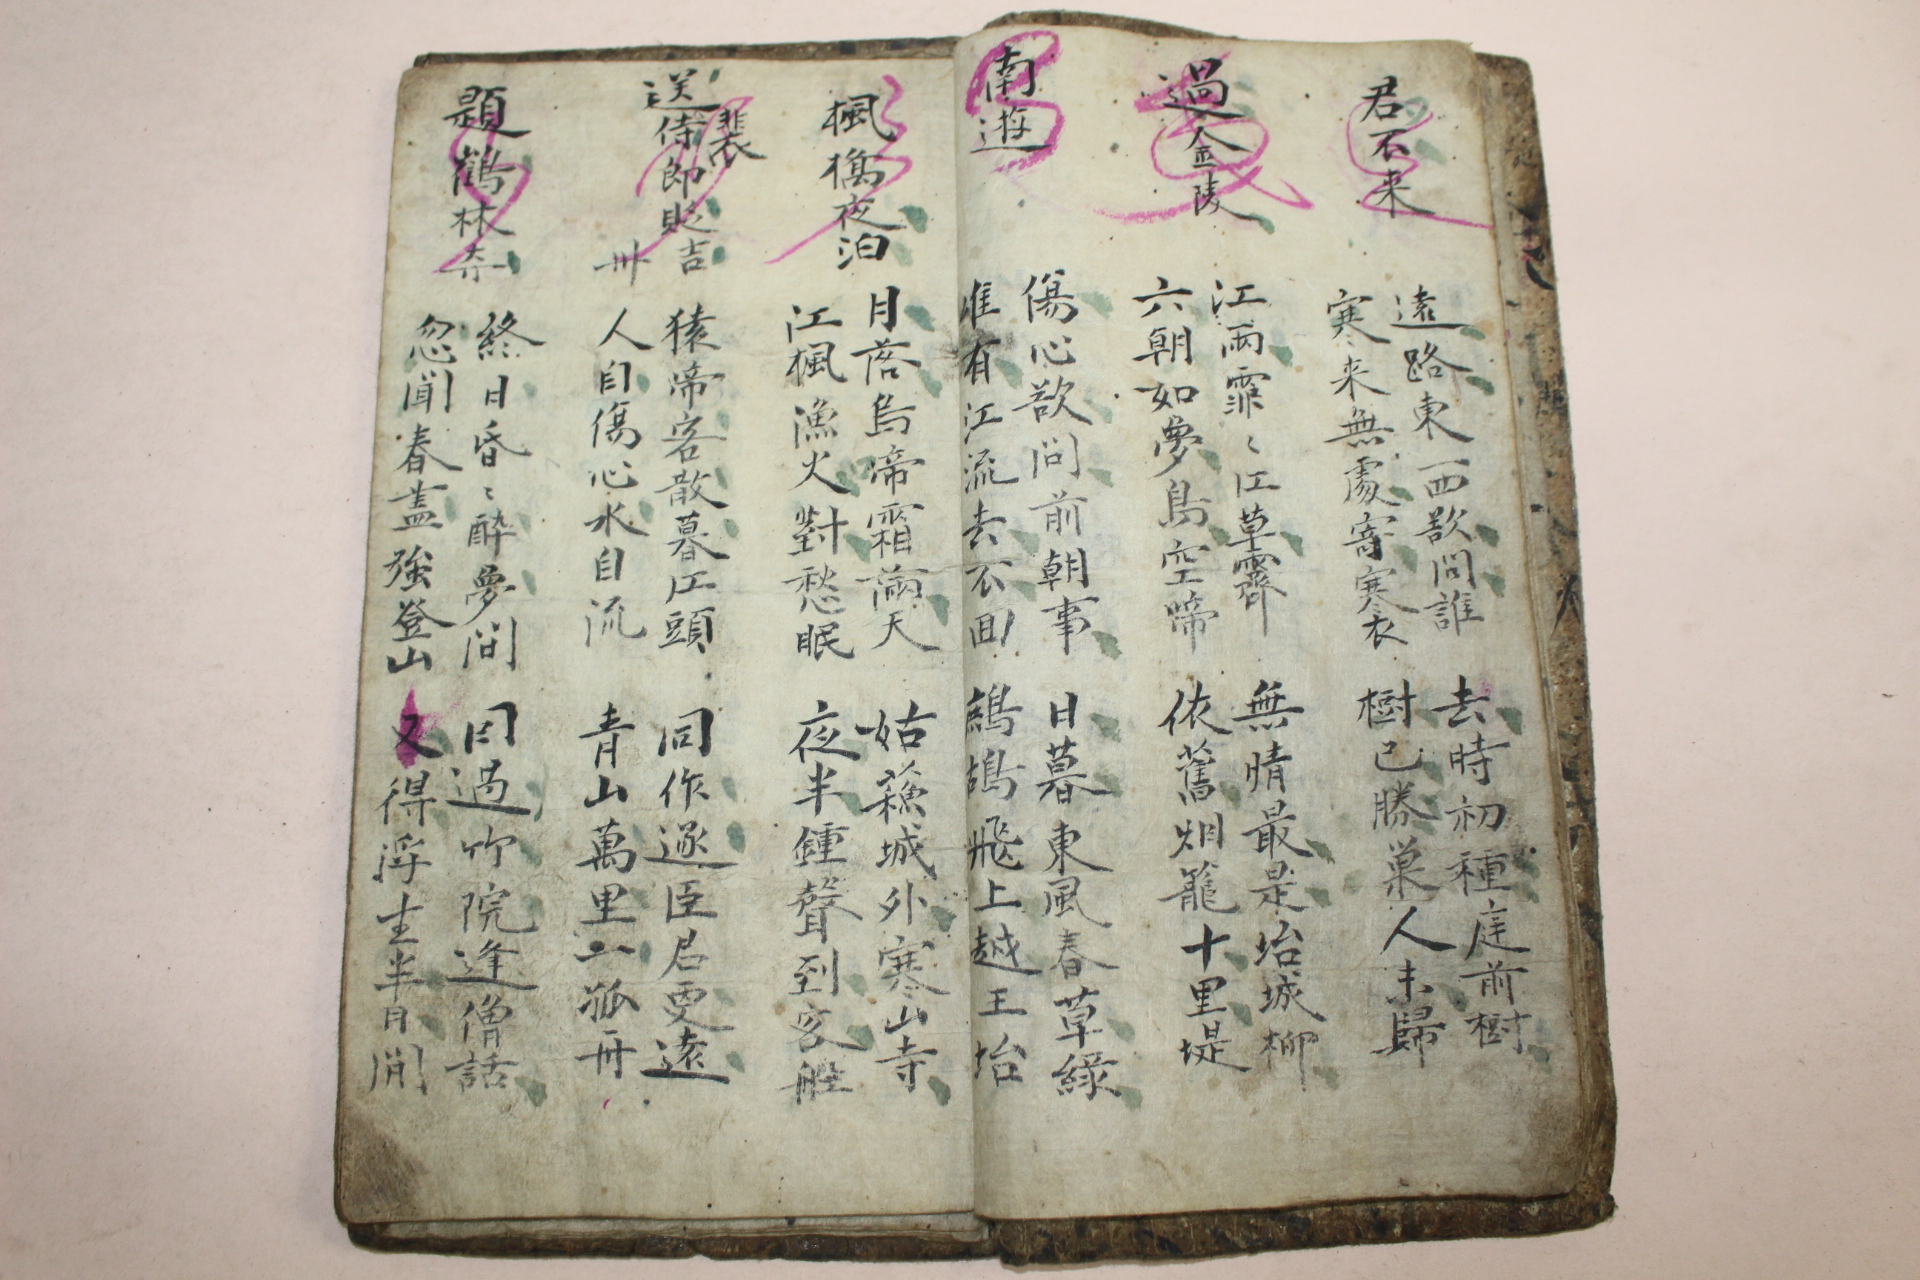 君不来
遠路東西欲問誰
寒来無處寄寒衣
去時初種庭前樹
樹已勝巢人未歸
過金陵
江雨霏〻江草齊
六朝如夢鳥空啼
無情最是坮城柳
依舊烟籠十里堤
南遊
傷心欲問前朝事
惟有江流去不回
日暮東風春草綠
鷓鴣飛上越王坮
楓橋夜泊
月落烏啼霜滿天
江楓漁火對愁眠
姑蘓城外寒山寺
夜半鍾聲到客船
送裴侍郎貶吉
州
猿啼客散暮江頭
人自傷心水自流
同作逐臣君更遠
青山萬里一孤舟
題鶴林寺
終日昏〻醉夢間
忽聞春盡強登山
因過竹院逢僧話
又得浮生半日閒